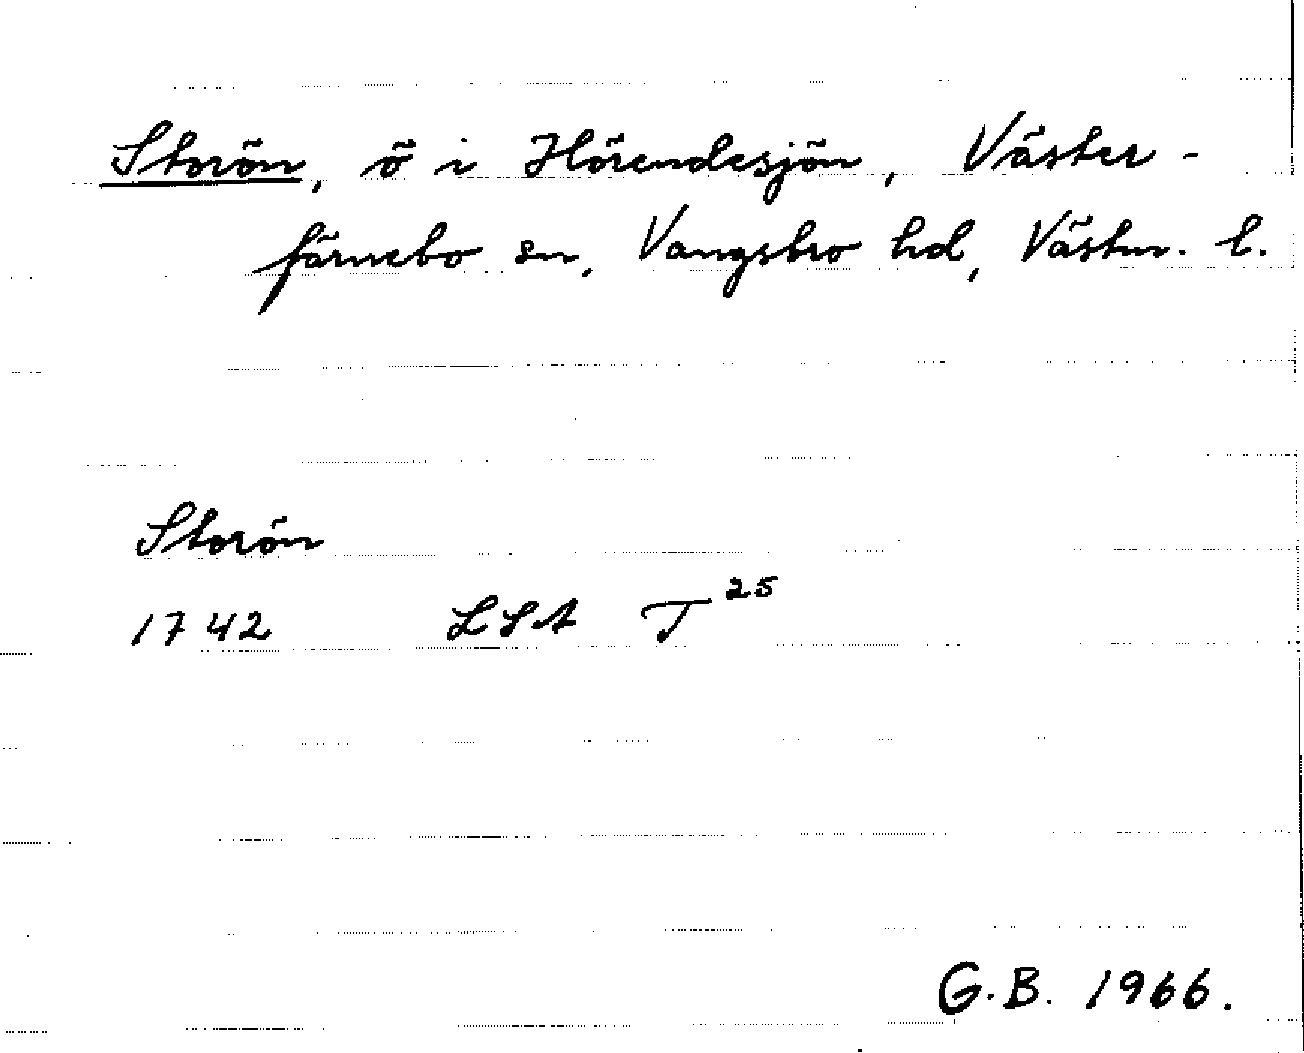 Storön, ö i Hörendesjön, Väster-
färnebo sn, Vangsbro hd, Västm. l.
Storön
1742 LSA T 25
G.B. 1966.